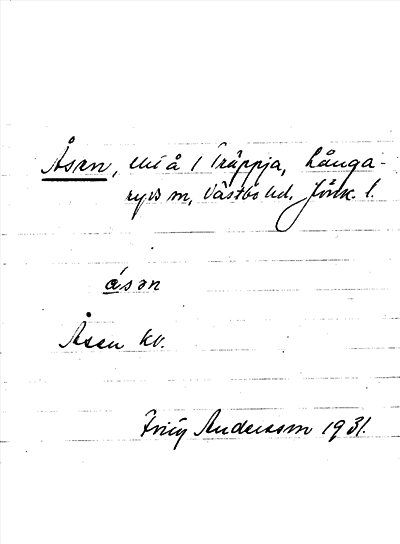 Åsen, till å i Träppja, Långa-
ryds sn, Västbo hd. Jönk. l.
åsən
Åsen kv.
Andersson 1931.